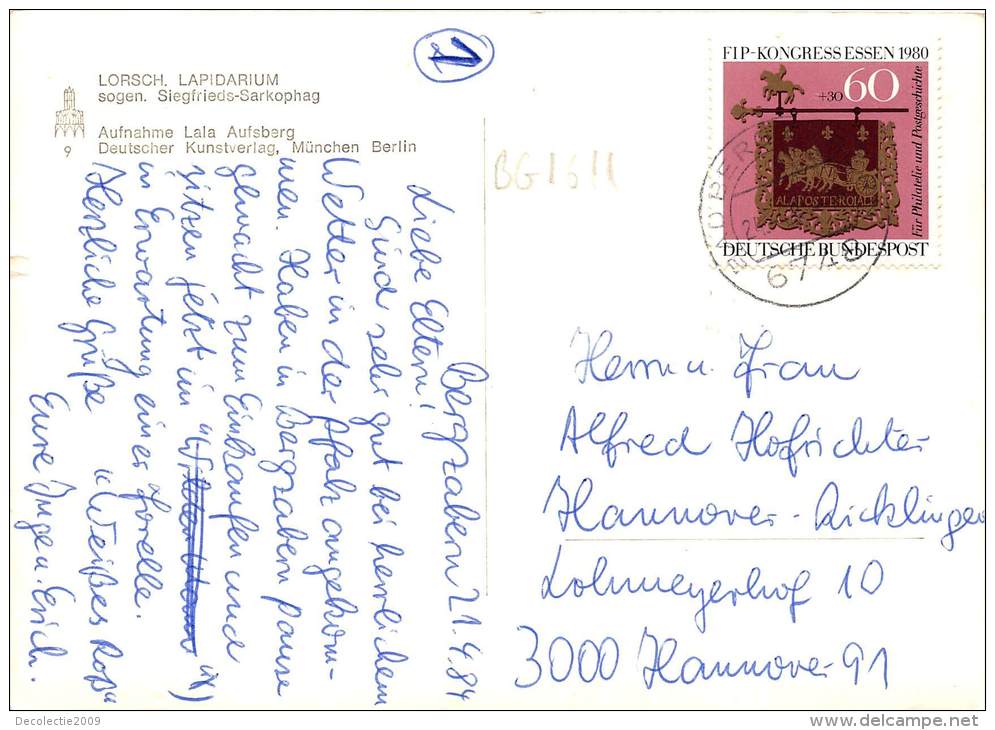 1
LORSCH. LAPIDARIUM
sogen. Siegfrieds-Sarkophag
Aufnahme Lala Aufsberg
Deutscher Kunstverlag, München Berlin
9
BG1611
Bergzabern 21.4.84
Liebe Eltern!
Sind sehr gut bei herrlichem
Wetter in der Pfalz angekom-
men. Haben in Bergzabern Pause
gemacht zum Einkaufen und
sitzen jetzt im "x)
in Erwartung einer Forelle.
Herzliche Grüße x Weißes Roß"
Eure Inge u. Erich.
FIP-KONGRESS ESSEN 1980
+30 60
Für Philatelie und Postgeschichte
A LA POSTE ROIALE
DEUTSCHE BUNDESPOST
6740
Herrn u. Frau
Alfred Hofrichter
Hannover-Ricklingen
Lohmeyerhof 10
3000 Hannover 91
Decolectie2009
delcampe.net